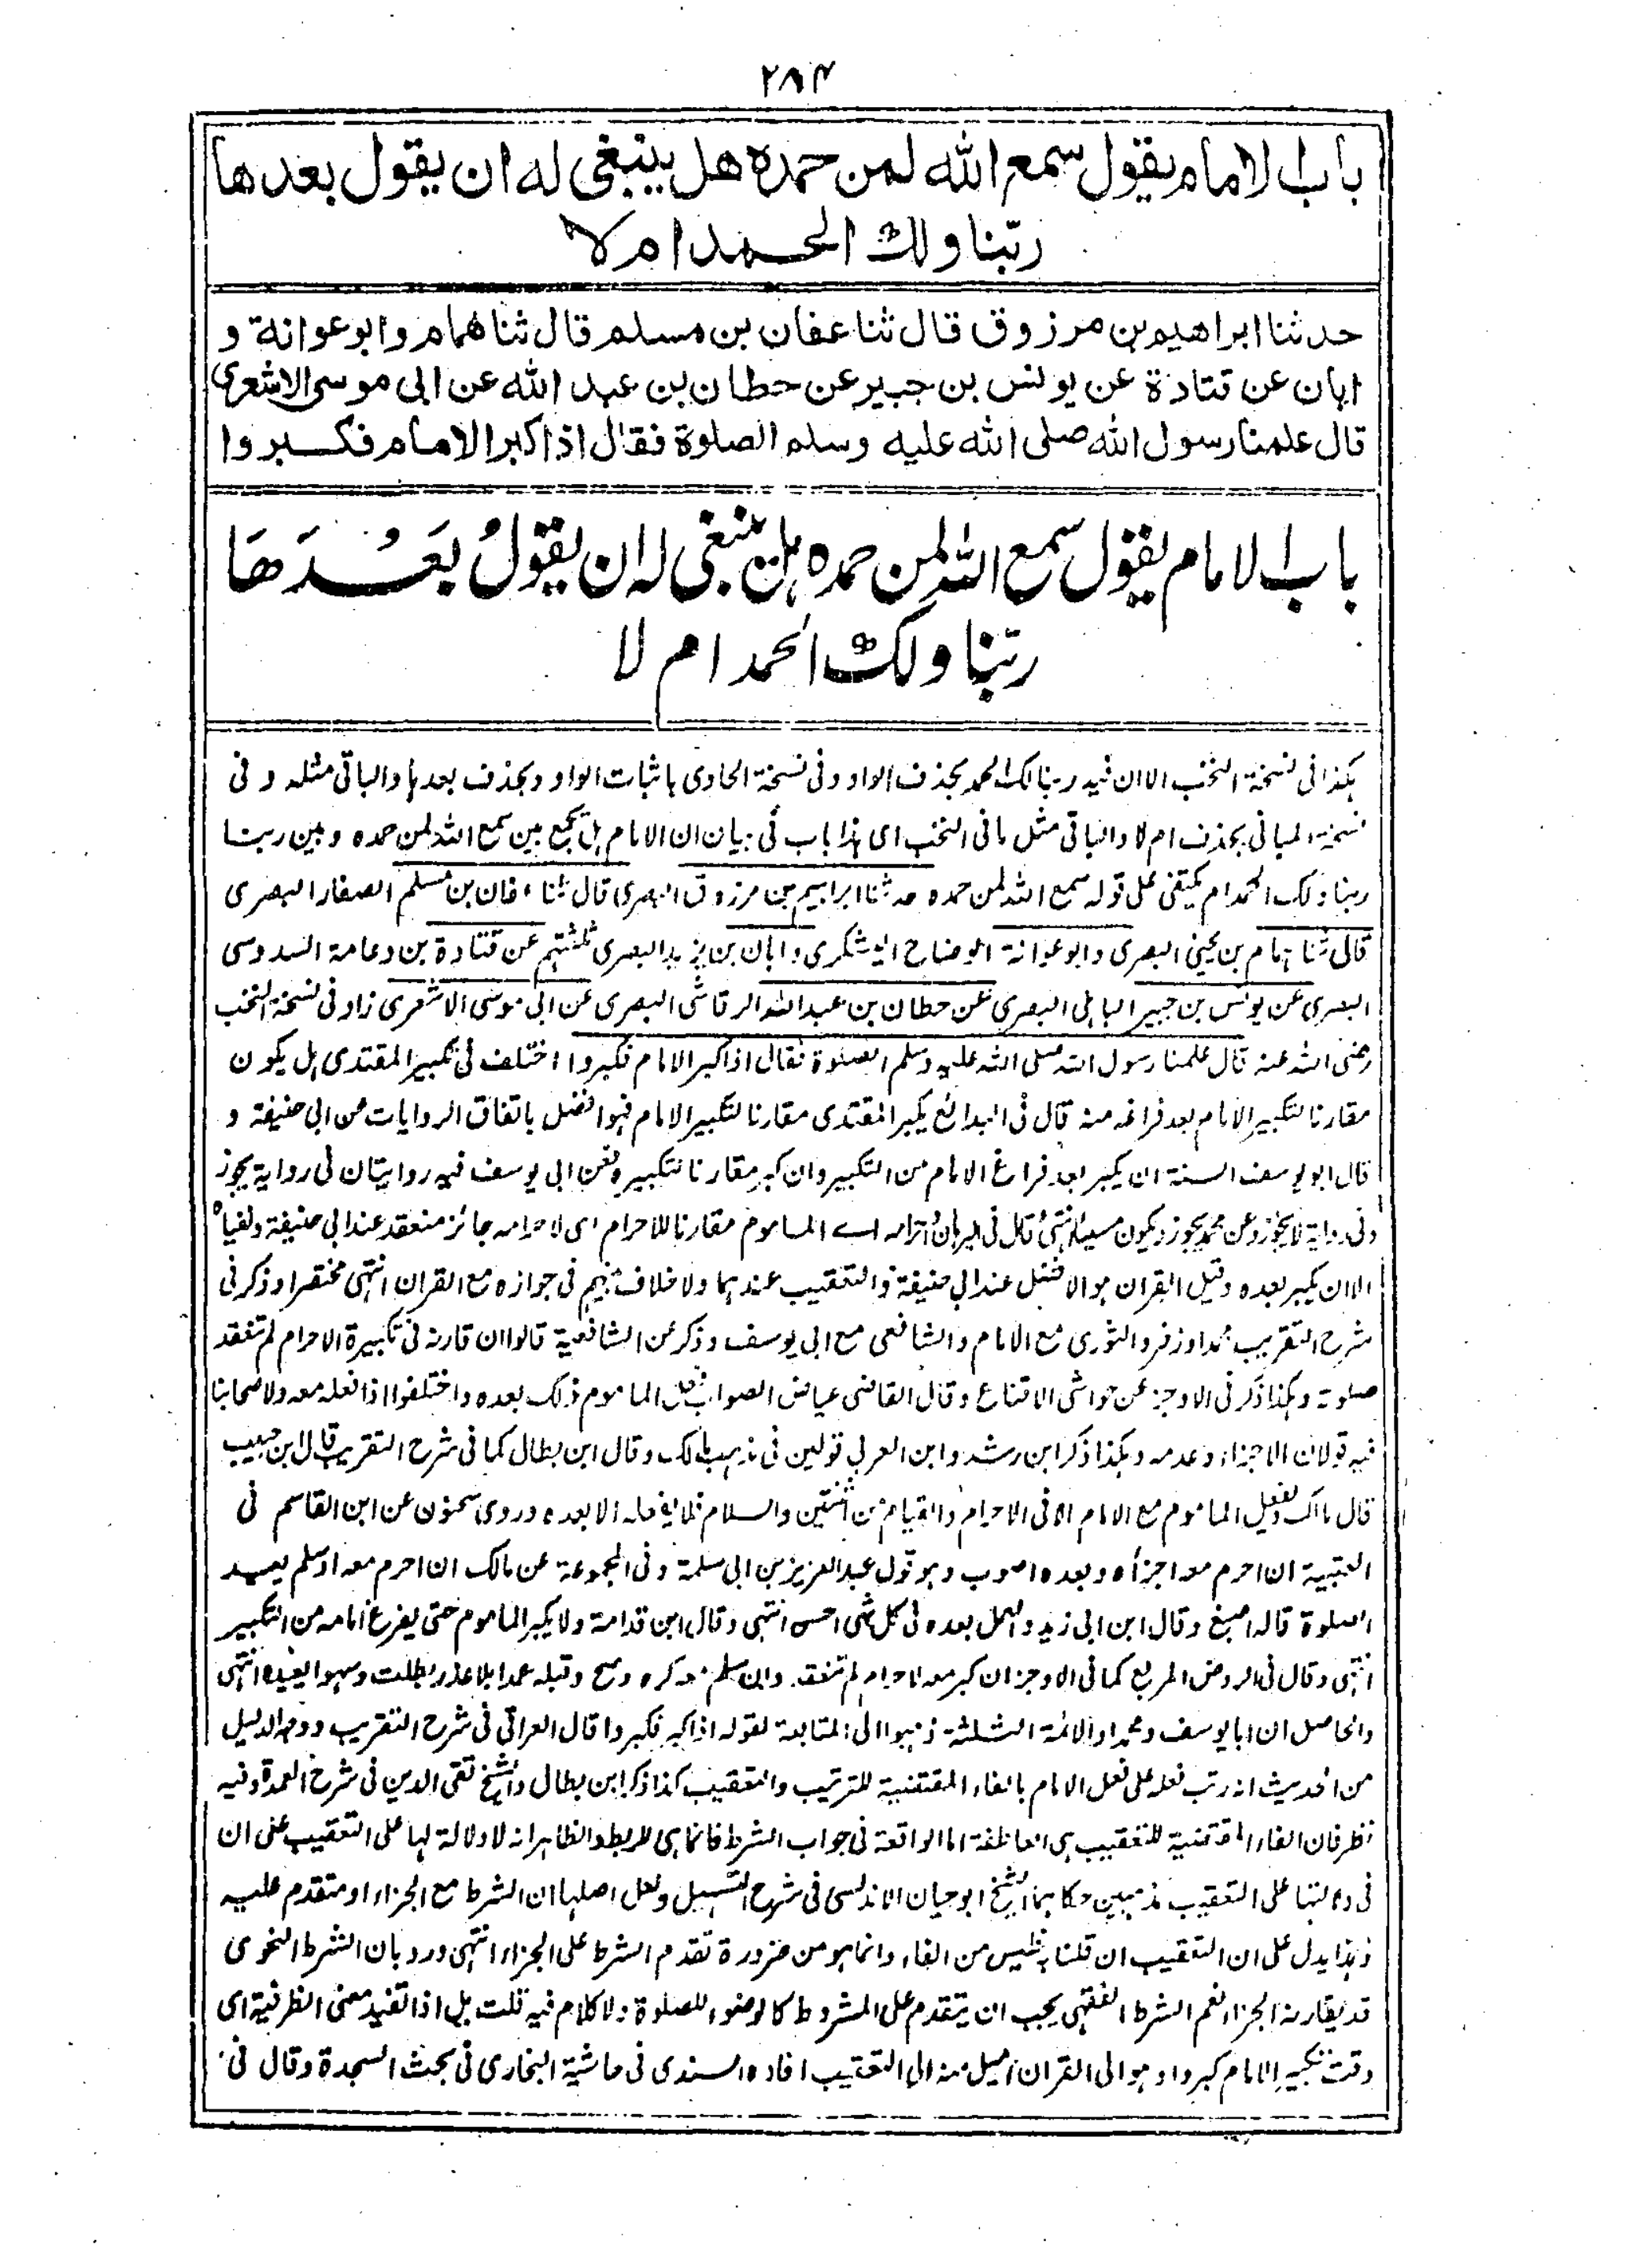 ٢٨٤
باب الامام يقول سمع الله لمن حمده هل ينبغى له ان يقول بعدها
ربّنا ولك الحمد ام لا
حدثنا ابراهيم بن مرزوق قال ثنا عفان بن مسلم قال ثنا همام وابو عوانة و
ابان عن قتادة عن يونس بن جبير عن حطان بن عبد الله عن ابى موسى الاشعرى
قال علمنا رسول الله صلى الله عليه وسلم الصلوة فقال اذا كبر الامام فكبروا
باب الامام يقول سمع الله لمن حمده هل ينبغى له ان يقولُ بَعُدَهَا
ربّنا ولك الحمد ام لا
هكذا فى نسخة النخب الا ان فيه ربنا لك الحمد بحذف الواو وفى نسخة الحاوى باثبات الواو وبحذف بعدها والباقى مثله وفى
نسخة المبانى بحذف ام لا والباقى مثل ما فى النخب اى هذا باب فى بيان ان الامام هل يجمع بين سمع الله لمن حمده وبين ربنا
ربنا ولك الحمد ام يكتفى على قوله سمع الله لمن حمده حدثنا ابراهيم بن مرزوق البصرى قال ثنا عفان بن مسلم الصفار البصرى
قال ثنا همام بن يحيى البصرى وابو عوانة الوضاح اليشكرى وابان بن يزيد البصرى ثلثتهم عن قتادة بن دعامة السدوسى
البصرى عن يونس بن جبير الباهلى البصرى عن حطان بن عبد الله الرقاشى البصرى عن ابى موسى الاشعرى زاد فى نسخة النخب
رضى الله عنه قال علمنا رسول الله صلى الله عليه وسلم الصلوة فقال اذا كبر الامام فكبروا اختلف فى تكبير المقتدى هل يكون
مقارنا لتكبير الامام بعد فراغه منه قال فى البدائع يكبر المقتدى مقارنا لتكبير الامام فهو افضل باتفاق الروايات عن ابى حنيفة و
قال ابو يوسف السنة ان يكبر بعد فراغ الامام من التكبير وان كبر مقارنا لتكبيره فعن ابى يوسف فيه روايتان فى رواية يجوز
وفى رواية لا يجوز وعن محمد يجوز ويكون مسيئا انتهى قال فى البرهان احرامه اے الماموم مقارنا للاحرام اى لاحرامه جائز منعقد عند ابى حنيفة ونفياه
الا ان يكبر بعده وقيل القران هو الافضل عند ابى حنيفة والتعقيب عندهما ولا خلاف بينهم فى جوازه مع القران انتهى مختصرا وذكر فى
شرح التقريب محمدا وزفر والثورى مع الامام والشافعى مع ابى يوسف وذكر عن الشافعية قالوا ان قارنه فى تكبيرة الاحرام لم تنعقد
صلوته وهكذا ذكر فى الاوجز عن حواشى الاقناع وقال القاضى عياض الصواب فعل الماموم ذلك بعده واختلفوا اذا فعله معه ولاصحابنا
فيه قولان الاجزاء وعدمه وهكذا ذكر ابن رشد وابن العربى قولين فى مذهب مالك وقال ابن بطال كما فى شرح التقريب قال ابن حبيب
قال مالك ويفعل الماموم مع الامام الا فى الاحرام والقيام من اثنتين والسلام فلا يفعله الا بعده وروى سحنون عن ابن القاسم فى
العتبية ان احرم معه اجزأه وبعده اصوب وهو قول عبد العزيز بن ابى سلمة وفى المجموعة عن مالك ان احرم معه او سلم يعيد
الصلوة قاله اصبغ وقال ابن ابى زيد والعمل بعده فى كل شى احسن انتهى وقال ابن قدامة ولا يكبر الماموم حتى يفرغ امامه من التكبير
انتهى وقال فى الروض المربع كما فى الاوجز ان كبر معه لاحرام لم تنعقد وان سلم معه كره وصح وقبله عمدا بلا عذر بطلت وسهوا يعيده انتهى
والحاصل ان ابا يوسف ومحمدا والائمة الثلثة ذهبوا الى المتابعة لقوله اذا كبر فكبروا قال العراقى فى شرح التقريب ووجه الدليل
من الحديث انه رتب فعله على فعل الامام بالفاء المقتضية للترتيب والتعقيب كذا ذكر ابن بطال والشيخ تقى الدين فى شرح العمدة وفيه
نظر فان الفاء المقتضية للتعقيب هى العاطفة اما الواقعة فى جواب الشرط فانما هى للربط والظاهر انه لا دلالة لها على التعقيب على ان
فى دلالتها على التعقيب مذهبين حكاهما الشيخ ابو حيان الاندلسى فى شرح التسهيل ولعل اصلها ان الشرط مع الجزاء او متقدم عليه
وهذا يدل على ان التعقيب ان قلنا به فليس من الفاء وانما هو من ضرورة تقدم الشرط على الجزاء انتهى ورد بان الشرط النحوى
قد يقارنه الجزاء نعم الشرط الفقهى يجب ان يتقدم على المشروط كالوضوء للصلوة ولا كلام فيه قلت بل اذا تفيد معنى الظرفية اى
وقت تكبير الامام كبروا وهو الى القران اميل منه الى التعقيب افاده السندى فى حاشية البخارى فى بحث السجدة وقال فى